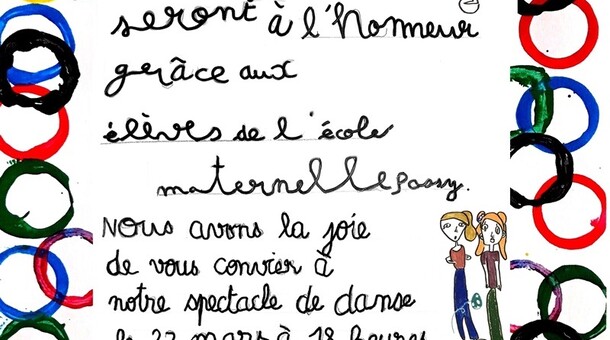 seront à l'honneur
grâce aux
élèves de l'école
maternelle Possy.
Nous avons la joie
de vous convier à
notre spectacle de danse
le 22 mars à 18 heures